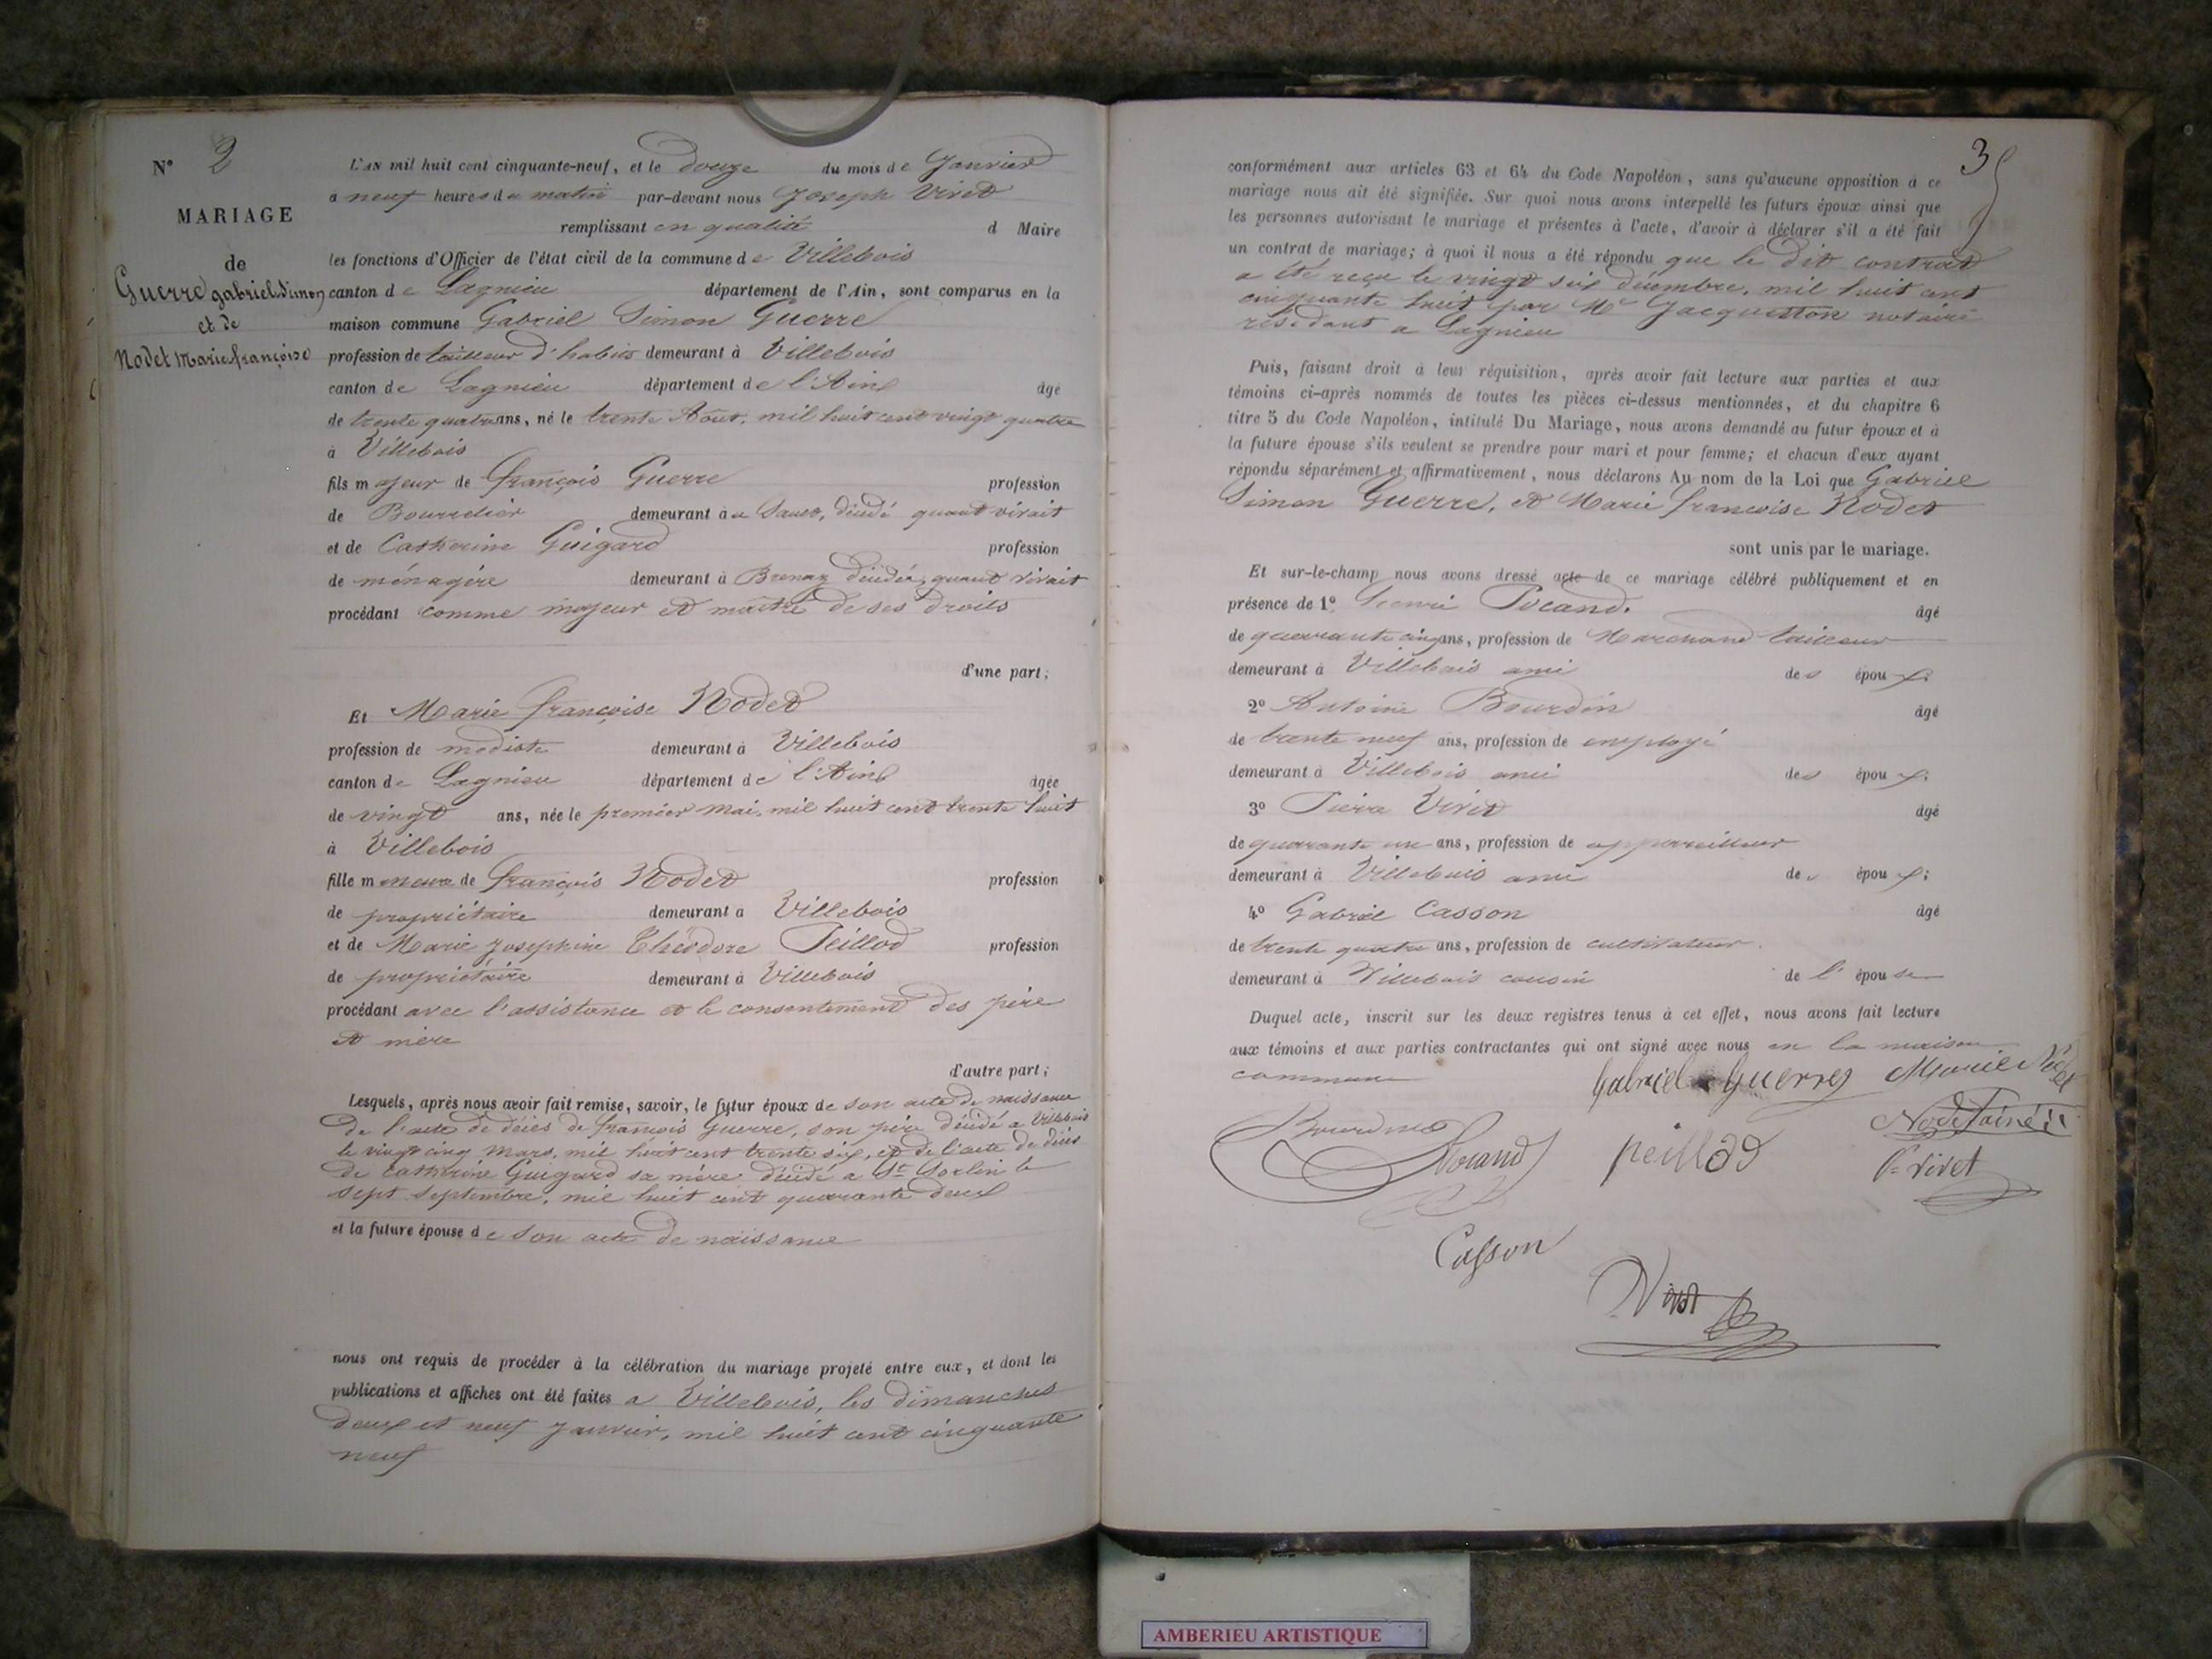 N° 2
MARIAGE
de
Guerre gabriel Simon
et de
Nodet Marie françoise
L'AN mil huit cent cinquante-neuf, et le douze du mois de Janvier
a neuf heures du matin par-devant nous Joseph Vivet
remplissant en qualité d Maire
les fonctions d'Officier de l'état civil de la commune de Villebois
canton de Lagnieu département de l'Ain, sont comparus en la
maison commune Gabriel Simon Guerre
profession de tailleur d'habits demeurant à Villebois
canton de Lagnieu département de l'Ain âgé
de trente quatre ans, né le trente Août, mil huit cent vingt quatre
à Villebois
fils majeur de françois Guerre profession
de Bourrelier demeurant à décédé quand vivait
et de Catherine Guigard profession
de ménagère demeurant à Brenaz décédée, quand vivait
procédant comme majeur et maître de ses droits
d'une part;
Et Marie françoise Nodet
profession de modiste demeurant à Villebois
canton de Lagnieu département de l'Ain âgée
de vingt ans, née le premier mai, mil huit cent trente huit
à Villebois
fille mineure de françois Nodet profession
de propriétaire demeurant a Villebois
et de Marie Josephine Théodore Peillod profession
de propriétaire demeurant à Villebois
procédant avec l'assistance et le consentement des père
et mère
d'autre part;
Lesquels, après nous avoir fait remise, savoir, le futur époux de son acte de naissance
de l'acte de décès de françois Guerre, son père décédé a Villebois
le vingt cinq mars, mil huit cent trente six, et de l'acte de décès
de Catherine Guigard sa mère décédé a St Sorlin le
sept septembre, mil huit cent quarante deux
et la future épouse de son acte de naissance
nous ont requis de procéder à la célébration du mariage projeté entre eux, et dont les
publications et affiches ont été faites a Villebois, les dimanches
deux et neuf Janvier, mil huit cent cinquante
neuf
3
conformément aux articles 63 et 64 du Code Napoléon, sans qu'aucune opposition à ce
mariage nous ait été signifiée. Sur quoi nous avons interpellé les futurs époux ainsi que
les personnes autorisant le mariage et présentes à l'acte, d'avoir à déclarer s'il a été fait
un contrat de mariage; à quoi il nous a été répondu que le dit contrat
a été reçu le vingt six décembre, mil huit cent
cinquante huit par Me Jacquetton notaire
résidant a Lagnieu
Puis, faisant droit à leur réquisition, après avoir fait lecture aux parties et aux
témoins ci-après nommés de toutes les pièces ci-dessus mentionnées, et du chapitre 6
titre 5 du Code Napoléon, intitulé Du Mariage, nous avons demandé au futur époux et à
la future épouse s'ils veulent se prendre pour mari et pour femme; et chacun d'eux ayant
répondu séparément et affirmativement, nous déclarons Au nom de la Loi que Gabriel
Simon Guerre, et Marie françoise Nodet
sont unis par le mariage.
Et sur-le-champ nous avons dressé acte de ce mariage célébré publiquement et en
présence de 1° henri Pocand. âgé
de quarante cinq ans, profession de Marchand tailleur
demeurant à Villebois ami des époux;
2° Antoine Bourdin âgé
de trente neuf ans, profession de employé
demeurant à Villebois ami des époux;
3° Pierre Vivet âgé
de quarante un ans, profession de appareilleur
demeurant à Villebois ami des époux;
4° Gabriel Casson âgé
de trente quatre ans, profession de cultivateur
demeurant à Villebois cousin de l'épouse
Duquel acte, inscrit sur les deux registres tenus à cet effet, nous avons fait lecture
aux témoins et aux parties contractantes qui ont signé avec nous en la maison
commune
Gabriel Guerre Marie Nodet
Bourdin Nodet ainé
Pocand peillod P. Vivet
Casson
Vivet
AMBERIEU ARTISTIQUE